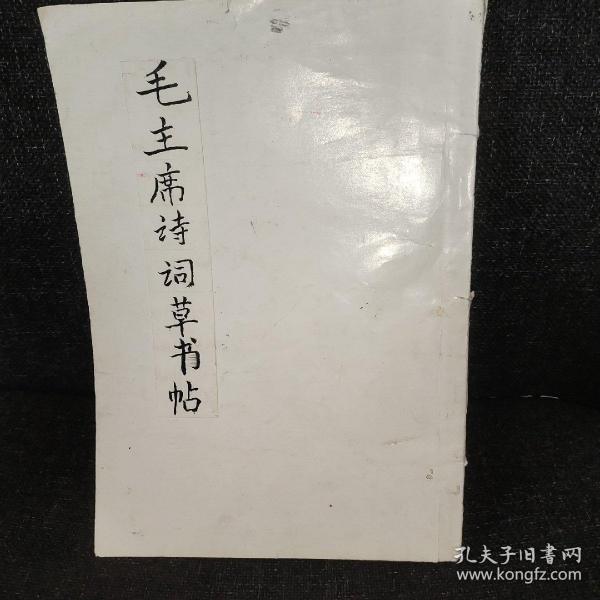 毛主席诗词草书帖
孔夫子旧書网
www.kongfz.com